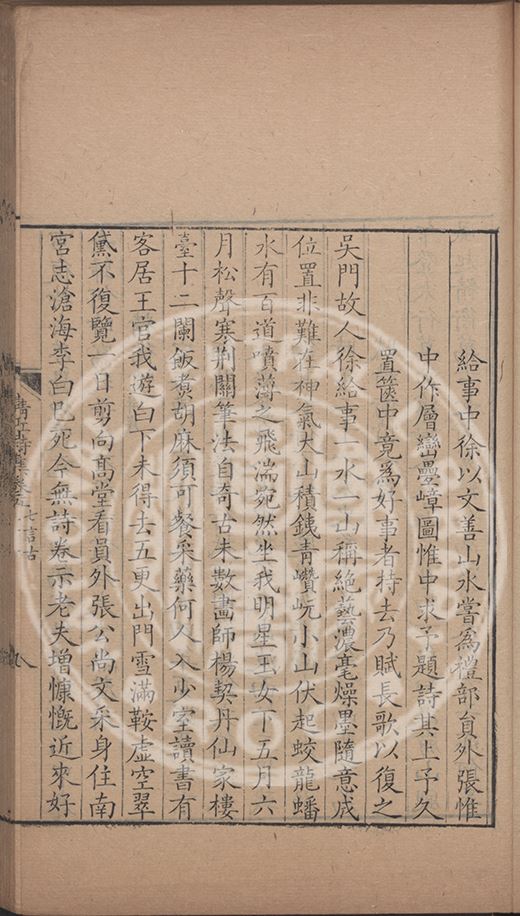 給事中徐以文善山水嘗爲禮部員外張惟
中作層巒疊嶂圖惟中求予題詩其上予久
置篋中竟爲好事者持去乃賦長歌以復之
吳門故人徐給事一水一山稱絕藝濃毫燥墨隨意成
位置非難在神氣大山積鐵青巑岏小山伏起蛟龍蟠
水有百道噴薄之飛湍宛然坐我明星玉女下五月六
月松聲寒荆關筆法自奇古未數畫師楊契丹仙家樓
臺十二闌飯煑胡麻須可餐采藥何人入少室讀書有
客居王官我遊白下未得去五更出門雪滿鞍虛空翠
黛不復覽一日剪向高堂看員外張公尚文采身住南
宮志滄海李白已死今無詩卷示老夫增慷慨近來好
青丘詩集卷 七言古